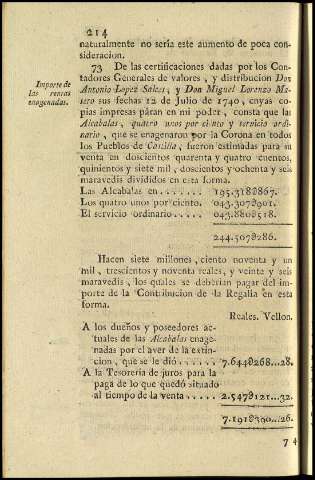 214
naturalmente no sería este aumento de poca con-
sideracion.
73 De las certificaciones dadas por los Con-
tadores Generales de valores, y distribucion Don
Antonio Lopez Salces, y Don Miguel Lorenzo Ma-
sero sus fechas 12 de Julio de 1740, cuyas co-
pias impresas páran en mi poder, consta que las
Alcabalas, quatro unos por ciento y servicio ordi-
nario, que se enagenaron por la Corona en todos
los Pueblos de Castilla, fueron estimadas para su
venta en doscientos quarenta y quatro cuentos,
quinientos y siete mil, doscientos y ochenta y seis
maravedis divididos en esta forma.
Importe de
las rentas
enagenadas.
Las Alcabalas en....... 195.318∂867.
Los quatro unos por ciento. 043.307∂901.
El servicio ordinario..... 043.880∂518.
244.507∂286.
Hacen siete millones, ciento noventa y un
mil, trescientos y noventa reales, y veinte y seis
maravedis, los quales se deberian pagar del im-
porte de la Contribucion de la Regalia en esta
forma.
Reales. Vellon.
A los dueños y poseedores ac-
tuales de las Alcabalas enage-
nadas por el aver de la extin-
cion, que se le dió...... 7.644∂268...28.
A la Tesorería de juros para la
paga de lo que quedó situado
al tiempo de la venta..... 2.547∂121...32.
7.191∂390...26.
74